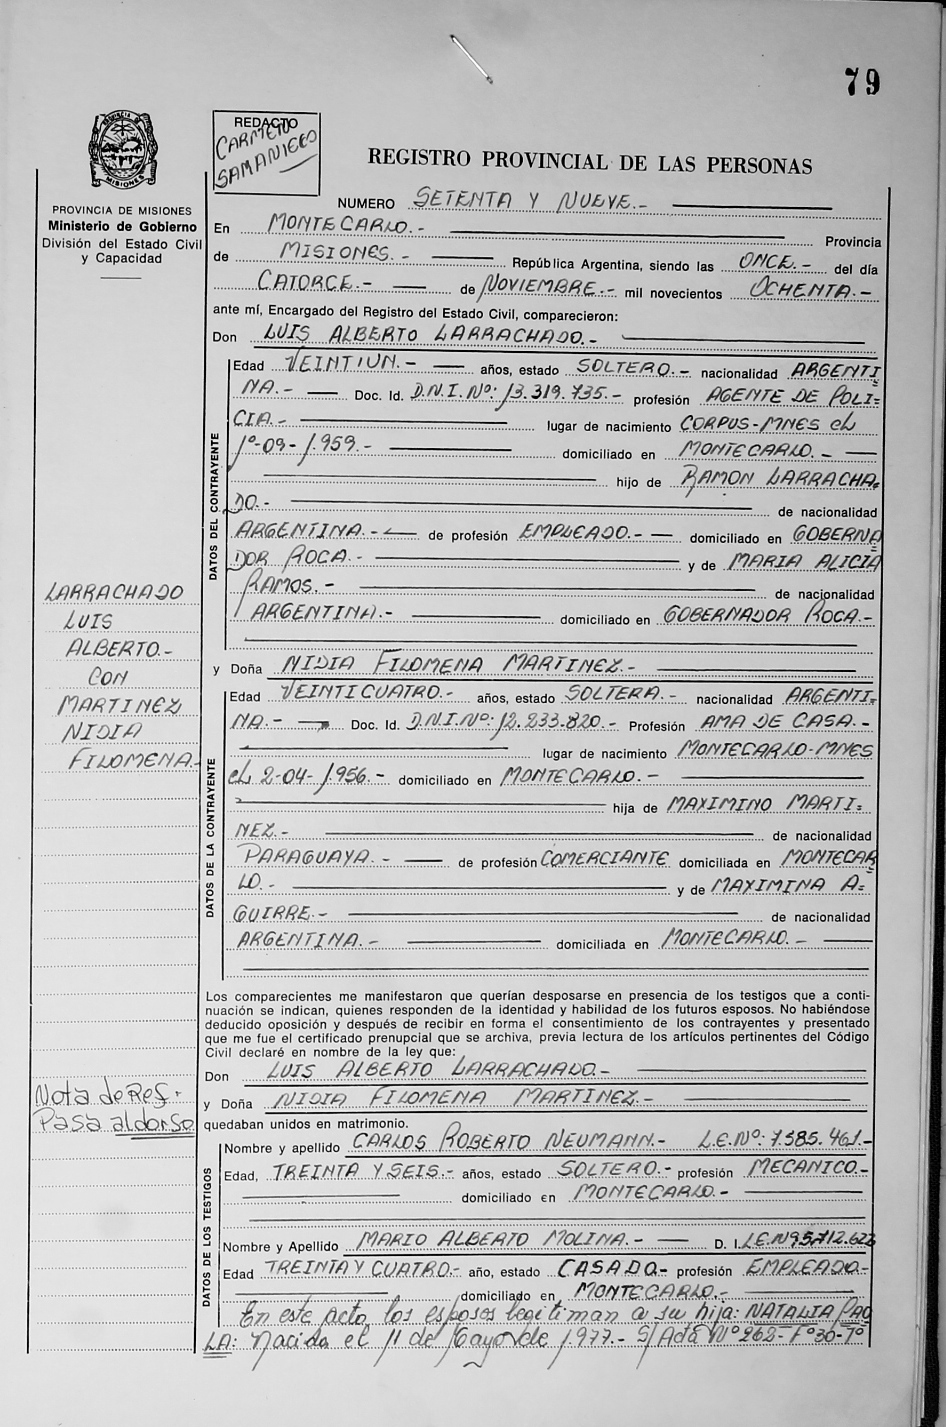 79
PROVINCIA DE MISIONES
REDACTO
CARMELO
SAMANIEGO
REGISTRO PROVINCIAL DE LAS PERSONAS
PROVINCIA DE MISIONES
Ministerio de Gobierno
División del Estado Civil
y Capacidad
NUMERO SETENTA Y NUEVE.-
En MONTECARLO.- Provincia
de MISIONES.- República Argentina, siendo las ONCE.- del día
CATORCE.- de NOVIEMBRE.- mil novecientos OCHENTA.-
ante mí, Encargado del Registro del Estado Civil, comparecieron:
Don LUIS ALBERTO LARRACHADO.-
DATOS DEL CONTRAYENTE
Edad VEINTIUN.- años, estado SOLTERO.- nacionalidad ARGENTI
NA.- Doc. Id. D.N.I.Nº: 13.319.735.- profesión AGENTE DE POLI=
CIA.- lugar de nacimiento CORPUS-MNES el
1º-09-1.959.- domiciliado en MONTECARLO.-
hijo de RAMON LARRACHA=
DO.- de nacionalidad
ARGENTINA.- de profesión EMPLEADO.- domiciliado en GOBERNA=
DOR ROCA.- y de MARIA ALICIA
RAMOS.- de nacionalidad
ARGENTINA.- domiciliado en GOBERNADOR ROCA.-
LARRACHADO
LUIS
ALBERTO.-
CON
MARTINEZ
NIDIA
FILOMENA.-
y Doña NIDIA FILOMENA MARTINEZ.-
DATOS DE LA CONTRAYENTE
Edad VEINTICUATRO.- años, estado SOLTERA.- nacionalidad ARGENTI=
NA.- Doc. Id. D.N.I.Nº: 12.233.820.- Profesión AMA DE CASA.-
lugar de nacimiento MONTECARLO-MNES
el 2-04-1.956.- domiciliado en MONTECARLO.-
hija de MAXIMINO MARTI=
NEZ.- de nacionalidad
PARAGUAYA.- de profesión COMERCIANTE domiciliada en MONTECAR=
LO.- y de MAXIMINA A=
GUIRRE.- de nacionalidad
ARGENTINA.- domiciliada en MONTECARLO.-
Los comparecientes me manifestaron que querían desposarse en presencia de los testigos que a conti-
nuación se indican, quienes responden de la identidad y habilidad de los futuros esposos. No habiéndose
deducido oposición y después de recibir en forma el consentimiento de los contrayentes y presentado
que me fue el certificado prenupcial que se archiva, previa lectura de los artículos pertinentes del Código
Civil declaré en nombre de la ley que:
Don LUIS ALBERTO LARRACHADO.-
y Doña NIDIA FILOMENA MARTINEZ.-
quedaban unidos en matrimonio.
Nota de Ref.-
Pasa al dorso
DATOS DE LOS TESTIGOS
Nombre y apellido CARLOS ROBERTO NEUMANN.- L.E.Nº: 7.585.461.-
Edad, TREINTA Y SEIS.- años, estado SOLTERO.- profesión MECANICO.-
domiciliado en MONTECARLO.-
Nombre y Apellido MARIO ALBERTO MOLINA.- D. I.
Edad TREINTA Y CUATRO.- año, estado CASADO.- profesión EMPLEADO.-
domiciliado en MONTECARLO.-
En este acto los esposos legitiman a su hija: NATALIA PAO
LA: Nacida el 11 de Mayo de 1.977.- S/Acta Nº 262- Fº 30-Tº